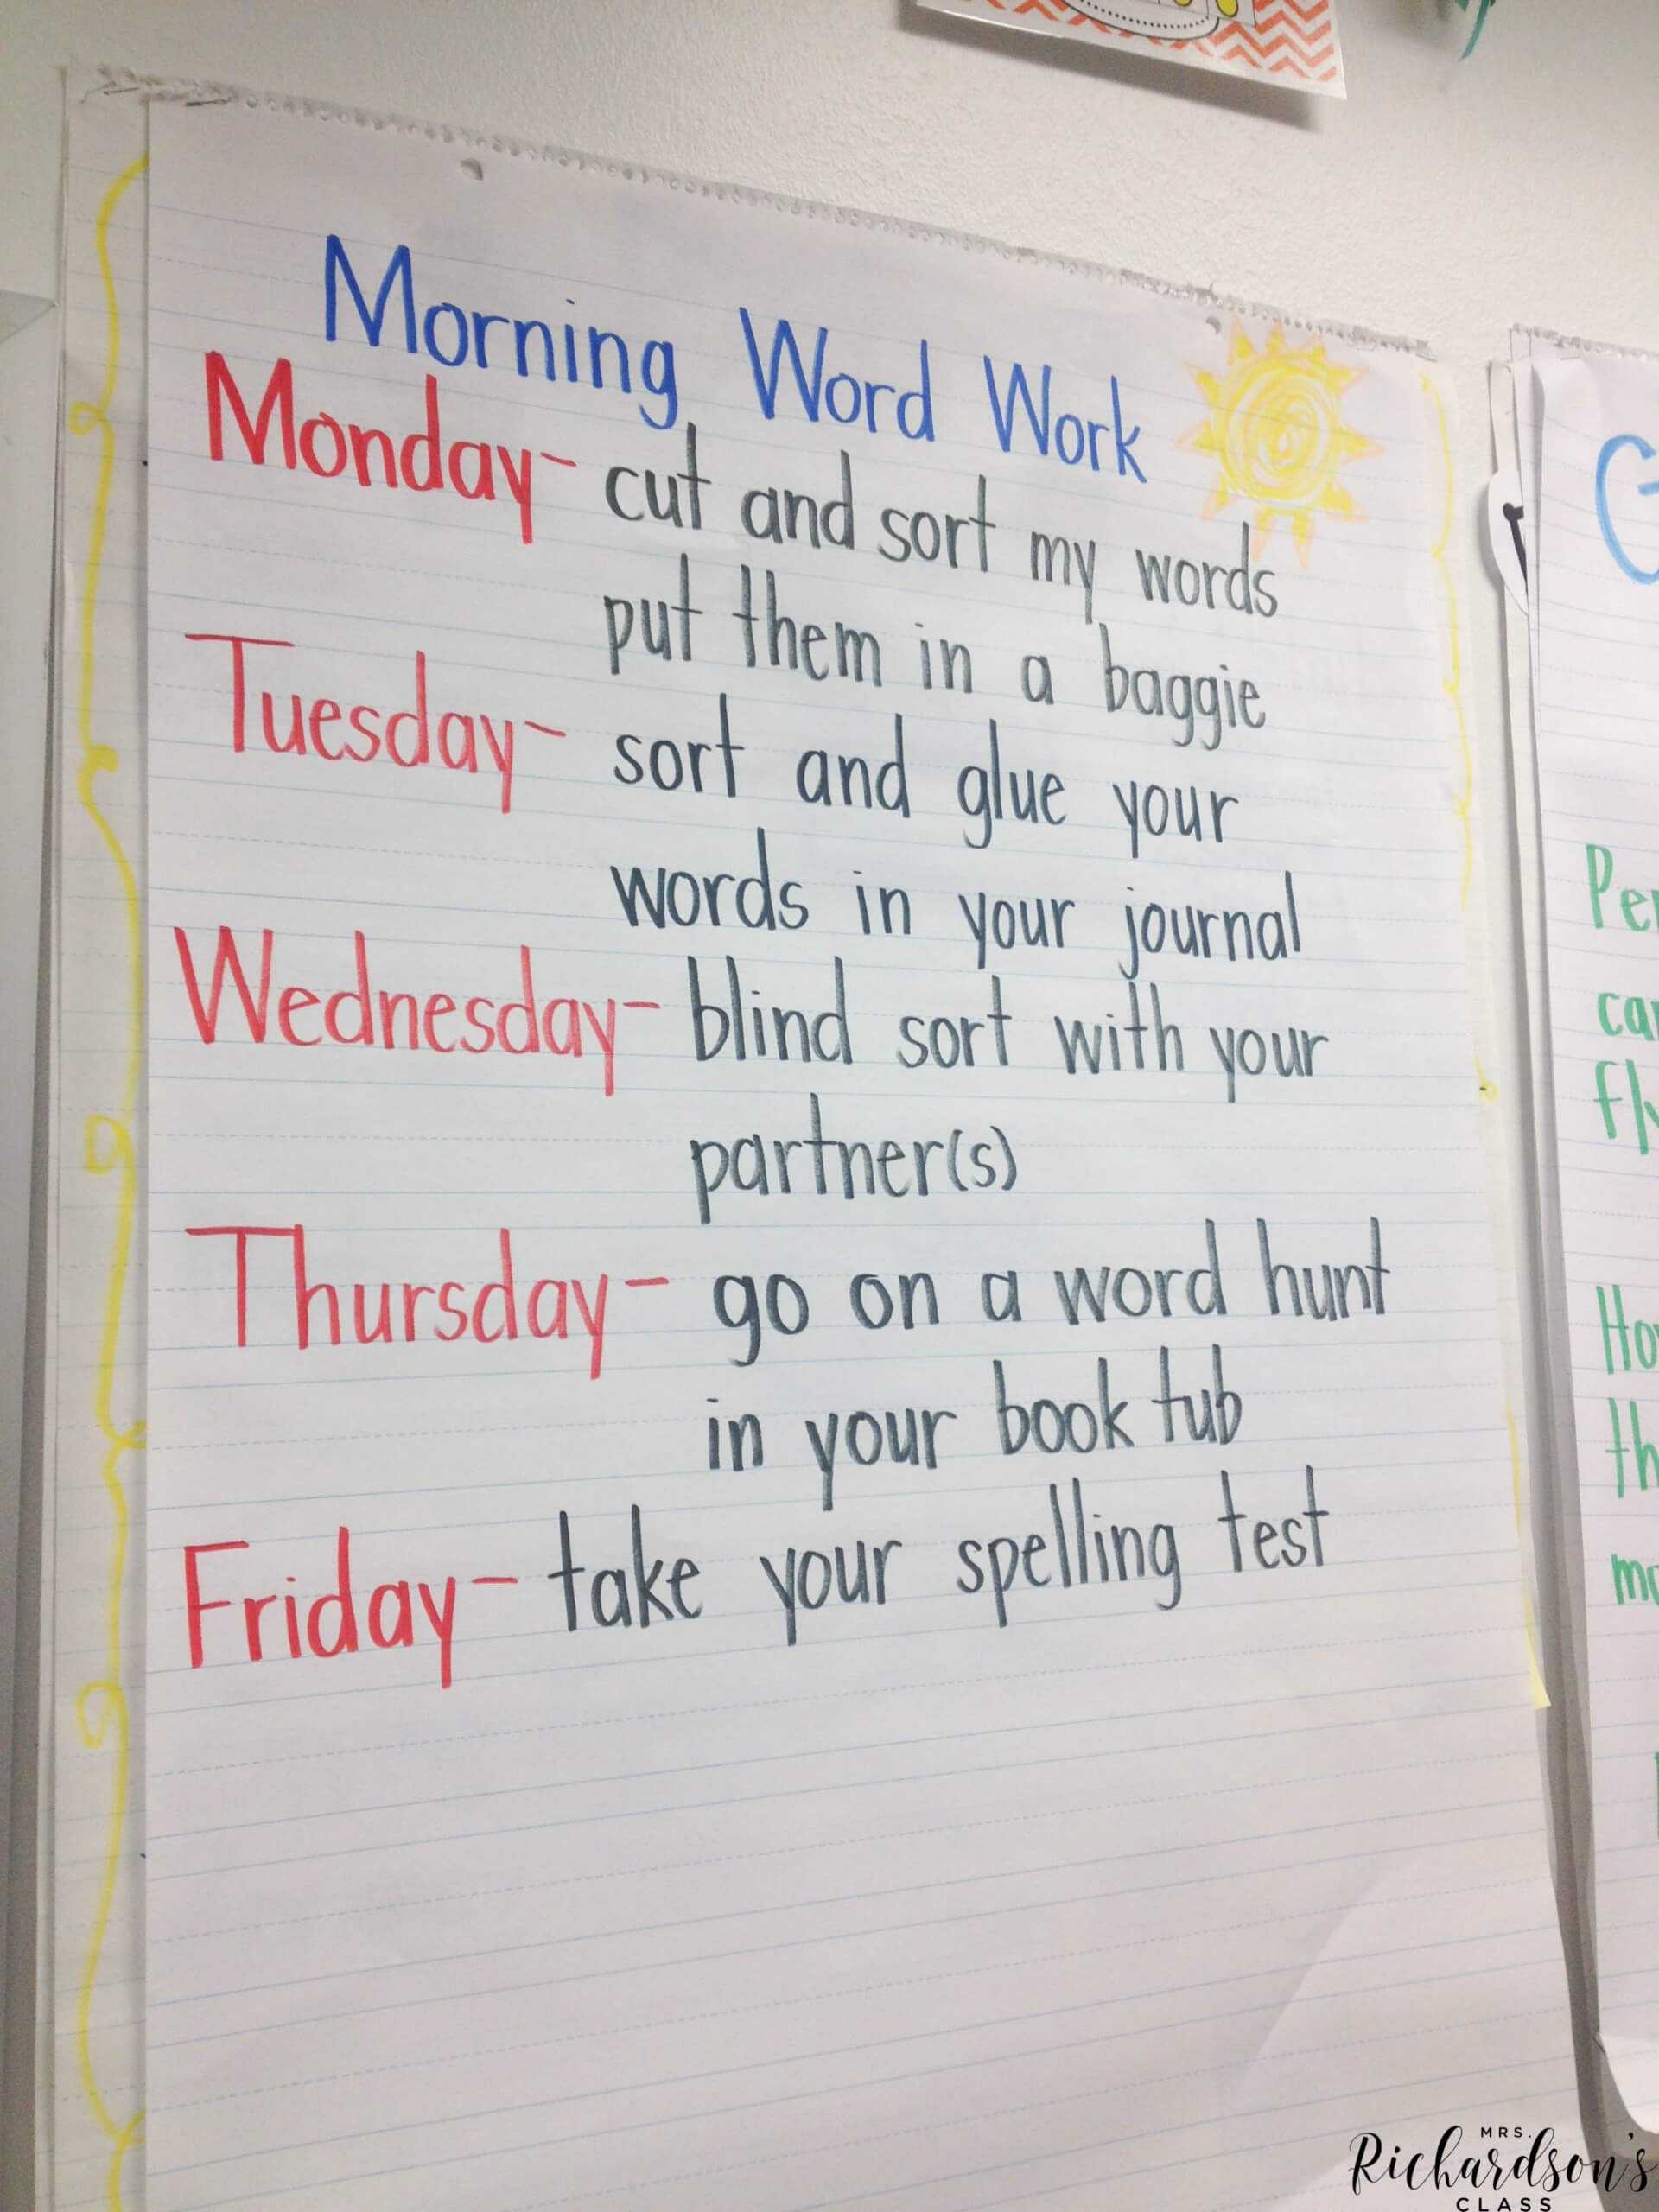 Morning Word Work
Monday- cut and sort my words
put them in a baggie
Tuesday- sort and glue your
words in your journal
Wednesday- blind sort with your
partner(s)
Thursday- go on a word hunt
in your book tub
Friday- take your spelling test
MRS.
Richardson's
CLASS